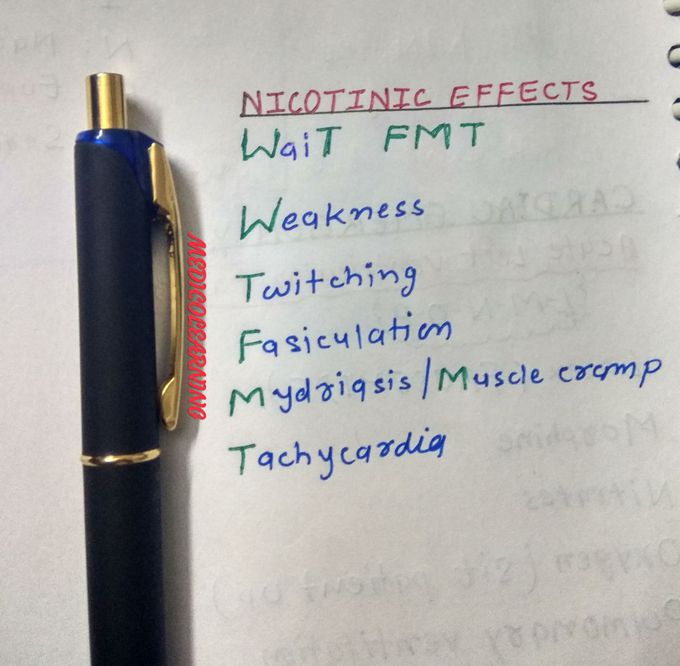 NICOTINIC EFFECTS
WaiT FMT
Weakness
Twitching
Fasiculation
Mydriasis/Muscle cramp
Tachycardia
MEDICOLEARNING